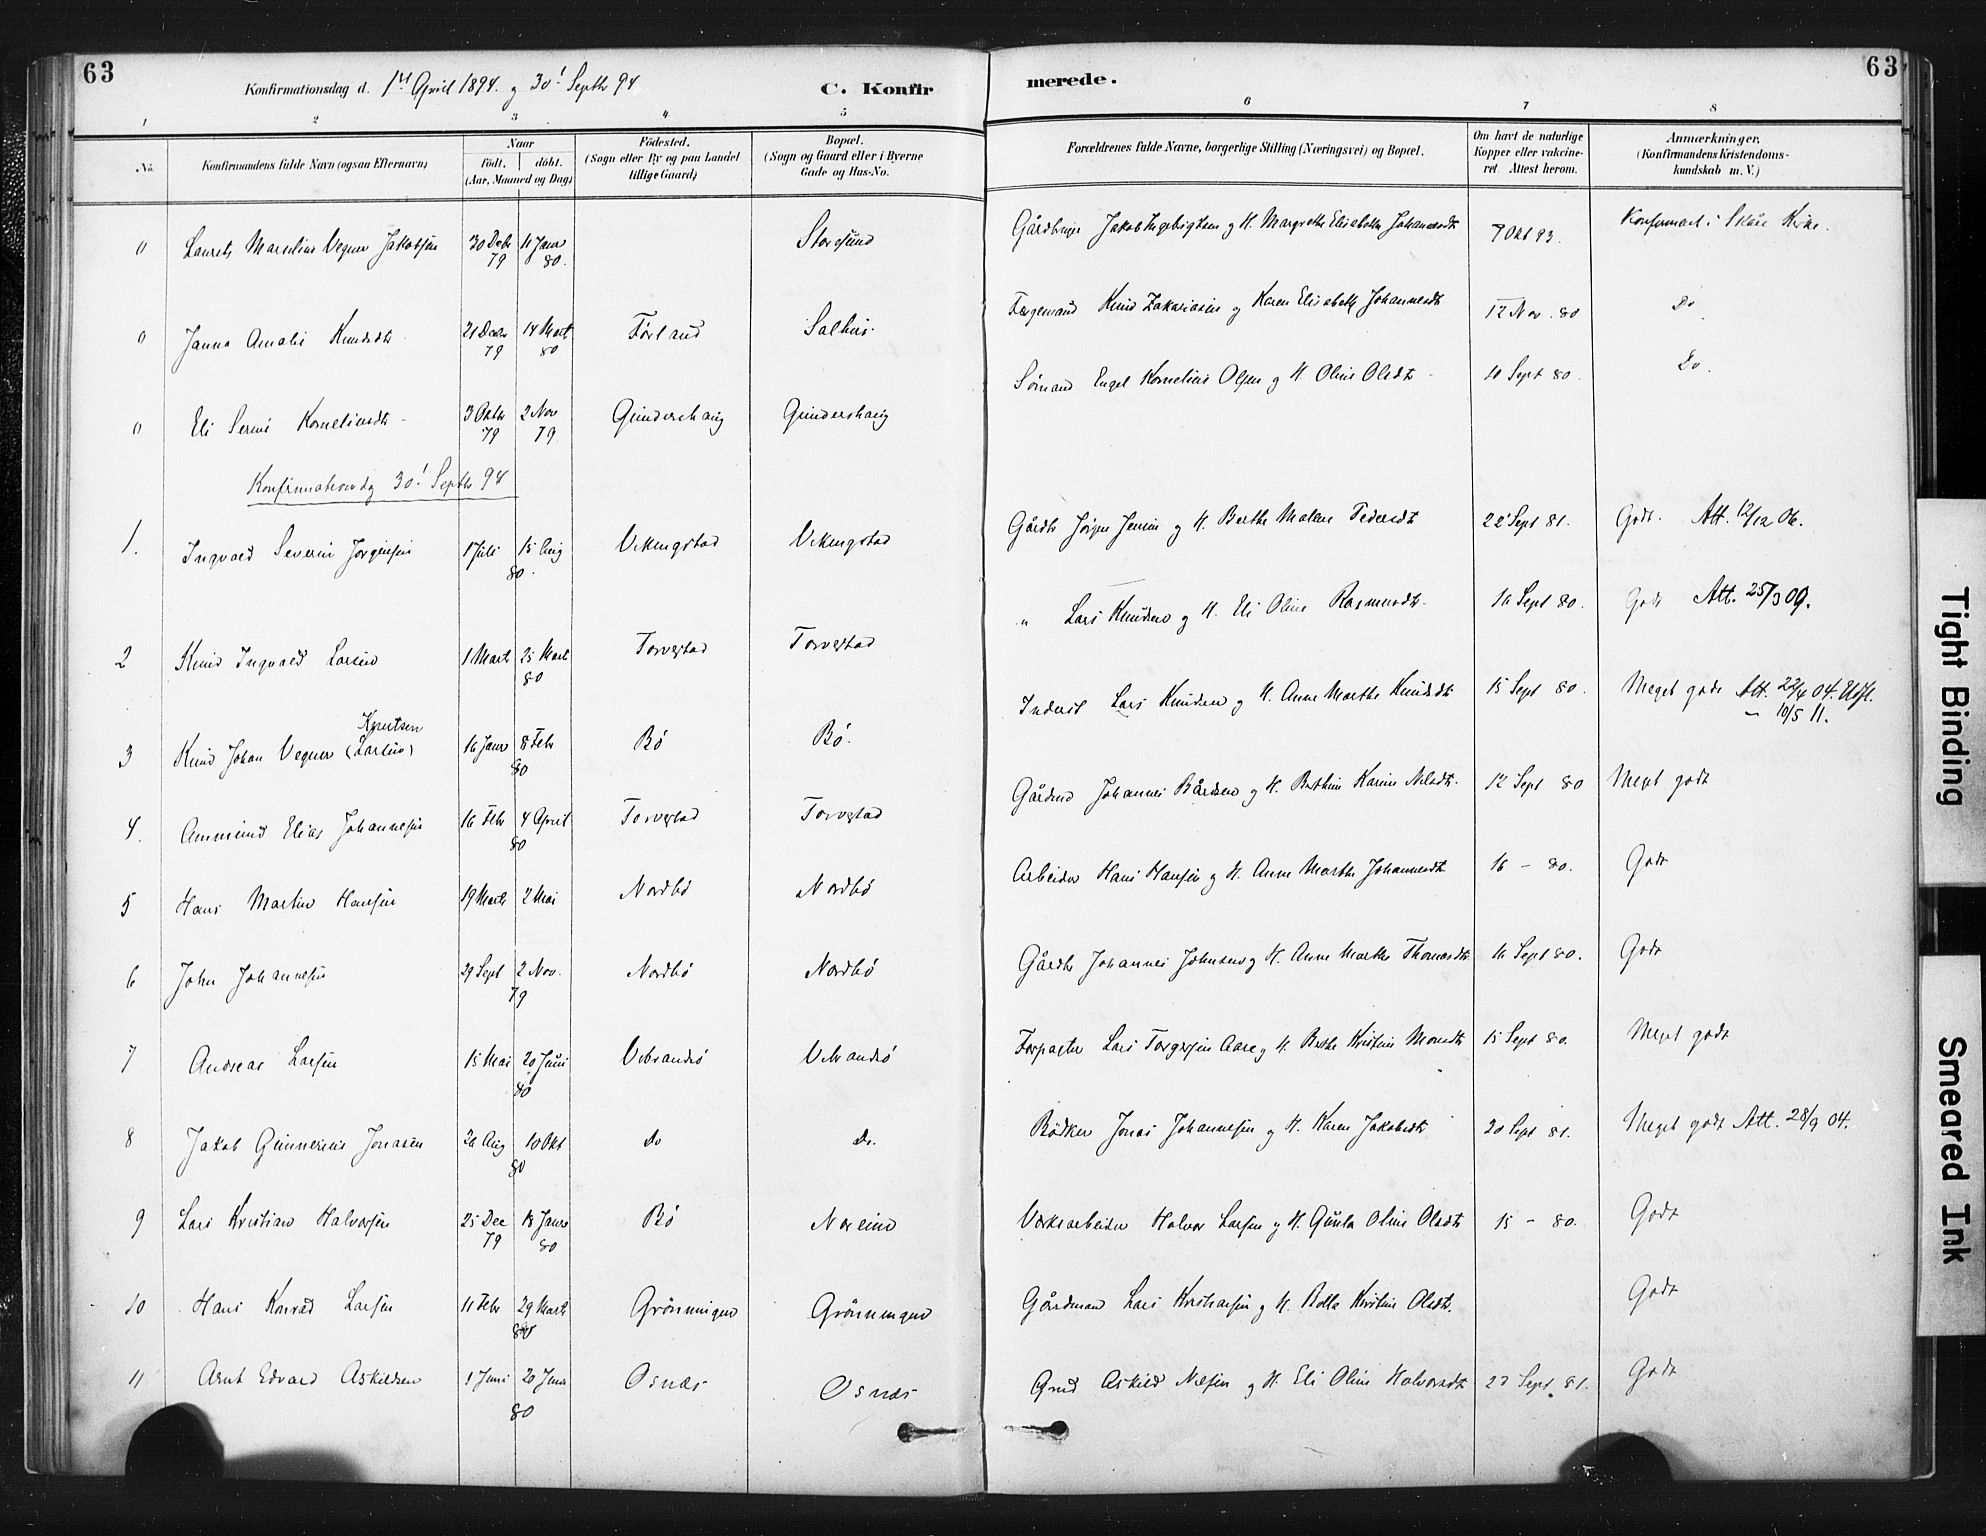 63
Konfirmationsdag d. 1st April 1894. og 30! Septbr 94
C. Konfir
merede.
63
1 2 3 4 5 6 7 8
No.
Konfirmandens fulde Navn (ogsaa Efternavn)
Naar
født. døbt.
(Aar, Maaned og Dag)
Fødested.
(Sogn eller By og paa Landet
tillige Gaard)
Bopæl.
(Sogn og Gaard eller i Byerne
Gade og Hus-No.
Forældrenes fulde Navne, borgerlige Stilling (Næringsvei) og Bopæl.
Om havt de naturlige
Kopper eller vakcine-
ret. Attest herom.
Anmærkninger.
(Konfirmandens Kristendoms-
kundskab m. V.)
0 Laurits Marselius Vegner Jakobsen 30 Decbr 79 11 Janr 80. Storesund Jakob Ingebrigtsen og H. Margrethe Elisabeth Johannesdt 7 Okt 93. Konfirmert i Skåre Kirke.
0 Janna Amalie Knudsdt 21 Decbr 79 14 Mart 80 Førland Salhus. Færgemand Knud Zakariasen og Karen Elisabeth Johannesdt 12 Nov. 80 Do
0 Eli Serine Korneliusdt 3 Oktbr 79 2 Nov 79 Gundershaug Gundershaug Sømand Engel Kornelius Olsen og H. Oline Olsdt 10 Sept 80. Do.
Konfirmationsdg 30! Septbr 94
1. Ingvald Severin Jørgensen 1 Juli 15 Aug 80. Vikingstad Vikingstad Gårdbr Jørgen Jensen og H. Berthe Malene Pedersdt 22 Sept 81. Godt. Att. 12/12 06.
2 Knud Ingvald Larsen 1 Marts 25 Mart 80 Torvestad Torvestad " Lars Knudsen og H. Eli Oline Rasmusdt. 16 Sept 80. Godt Att. 25/3 09.
3 Knud Johan Vegner (Larsen) Knutsen 16 Janr 8 Febr 80 Bö Bö. Inderst Lars Knudsen og H. Anne Marthe Knudsdt 15 Sept 80. Meget godt Att. 22/4 04. Udfl.
– 10/5 11.
4. Ammund Elias Johannesen 16 Febr 4 April 80 Torvestad Torvestad Gårdmd Johannes Bårdsen og H. Berthine Karine Nilsdt. 12 Sept 80 Meget godt
5 Hans Martin Hansen 19 Marts 2 Mai Nordbö Nordbö Arbeider Hans Hansen og H. Anne Marthe Johannesdt 16 – 80. Godt
6 John Johannesen 29 Sept 2 Nov. 79 Nordbö Nordbö Gårdbr Johannes Johnsen og H. Anne Marthe Thomasdt 16 Sept 80. Godt
7 Andreas Larsen 15 Mai 20 Juni 80 Vibrandsö Vibrandsö Forpagter Lars Torgersen Aare og H. Berthe Kristine Monsdt 15 Sept 80. Meget godt
8 Jakob Gunnerius Jonasen 20 Aug 10 Okt 80 Do Do. Bödker Jonas Johannesen og H. Karen Jakobsdt 20 Sept 81. Meget godt Att. 28/9 04.
9 Lars Kristian Halvorsen 25 Dec 79 18 Janr 80 Bö Noreim Værksarbeider Halvor Larsen og H. Gunla Oline Olsdt 15 – 80. Godt
10 Hans Konrad Larsen 11 Febr 29 Marts 80 Grönningen Grönningen Gårdmand Lars Kristiansen og H. Kirstine Olsdt. Godt
11 Arnt Edvard Askildsen 1 Juni 20 Juni 80 Osnæs Osnæs Askild Nilsen og H. Eli Oline Halvorsdt 22 Sept. 81. Godt
Tight Binding
Smeared Ink